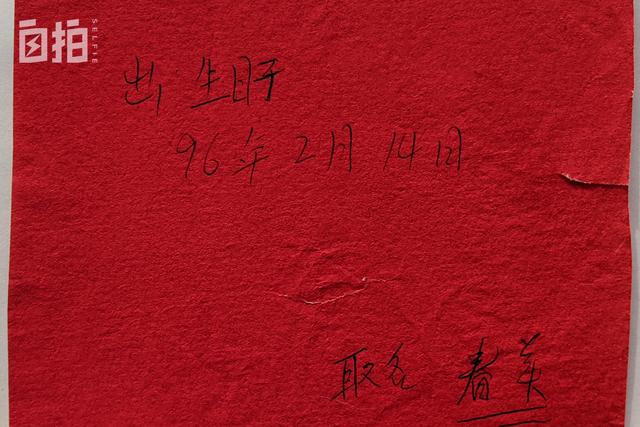 自拍
SELFIE
出生日于
96年2月14日
取名 春美